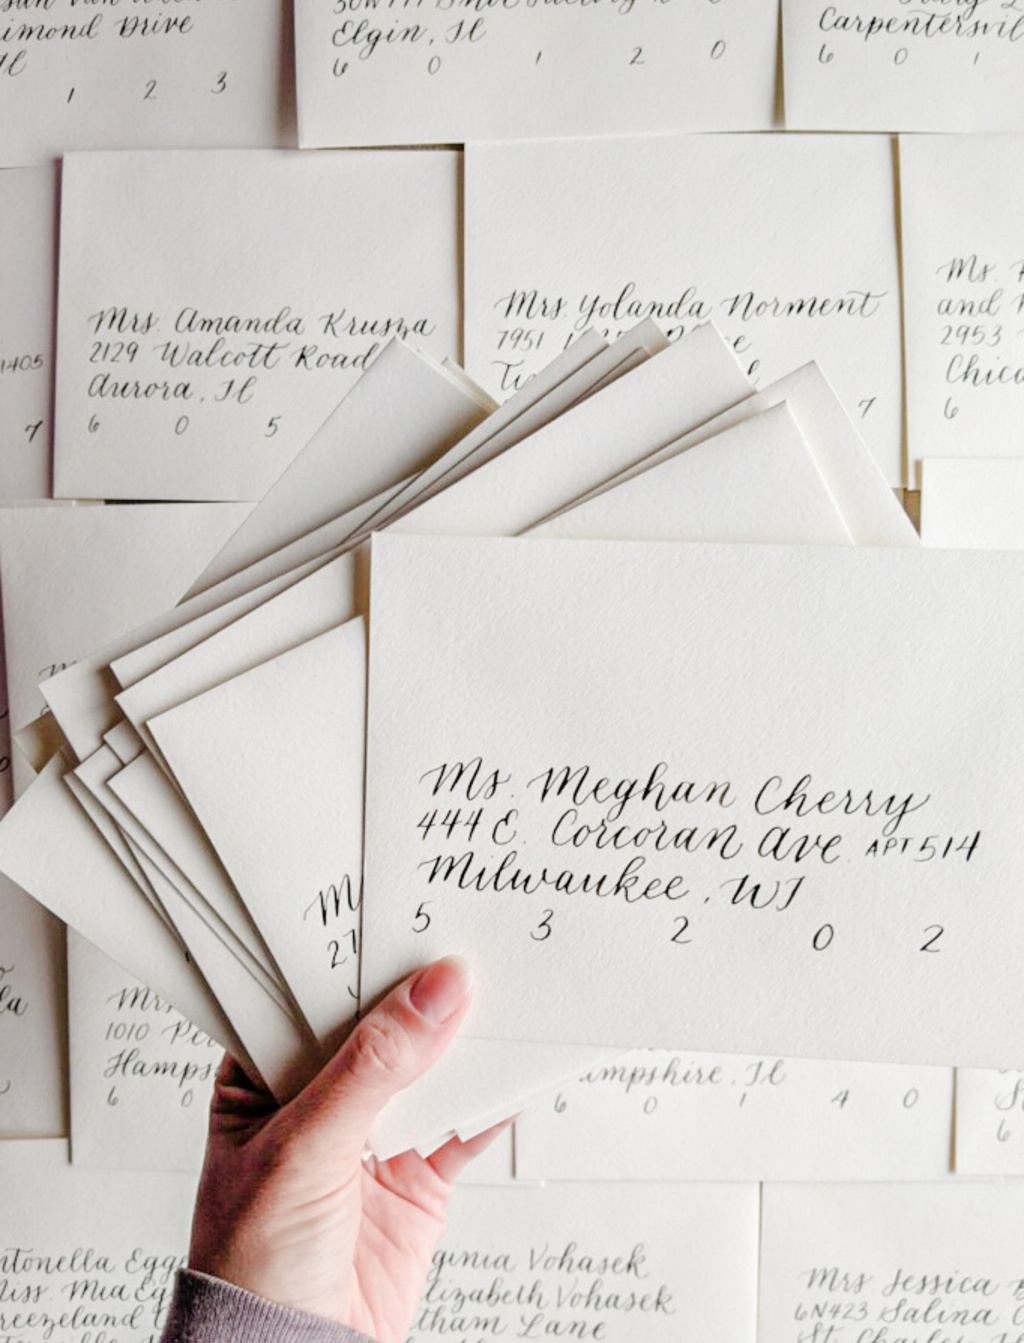 Drive
Il
1 2 3
Elgin, Il
6 0 1 2 0
Carpentersvil
6 0 1
1405
7
Mrs. Amanda Krusza
2129 Walcott Road
Aurora, Il
6 0 5
Mrs. Yolanda Norment
7951
7
Ms.
and
2953
Chic
6
Ms. Meghan Cherry
444 E. Corcoran Ave. APT 514
Milwaukee, WI
5 3 2 0 2
M
27
Mrs.
1010 Per
Hamps
6 0
mpshire, Il
6 0 1 4 0
6
ntonella Egg
iss. Mia Eg
reezeland
ginia Vohasek
lizabeth Vohasek
tham Lane
Mrs. Jessica
6N423 Salina
St. Cha